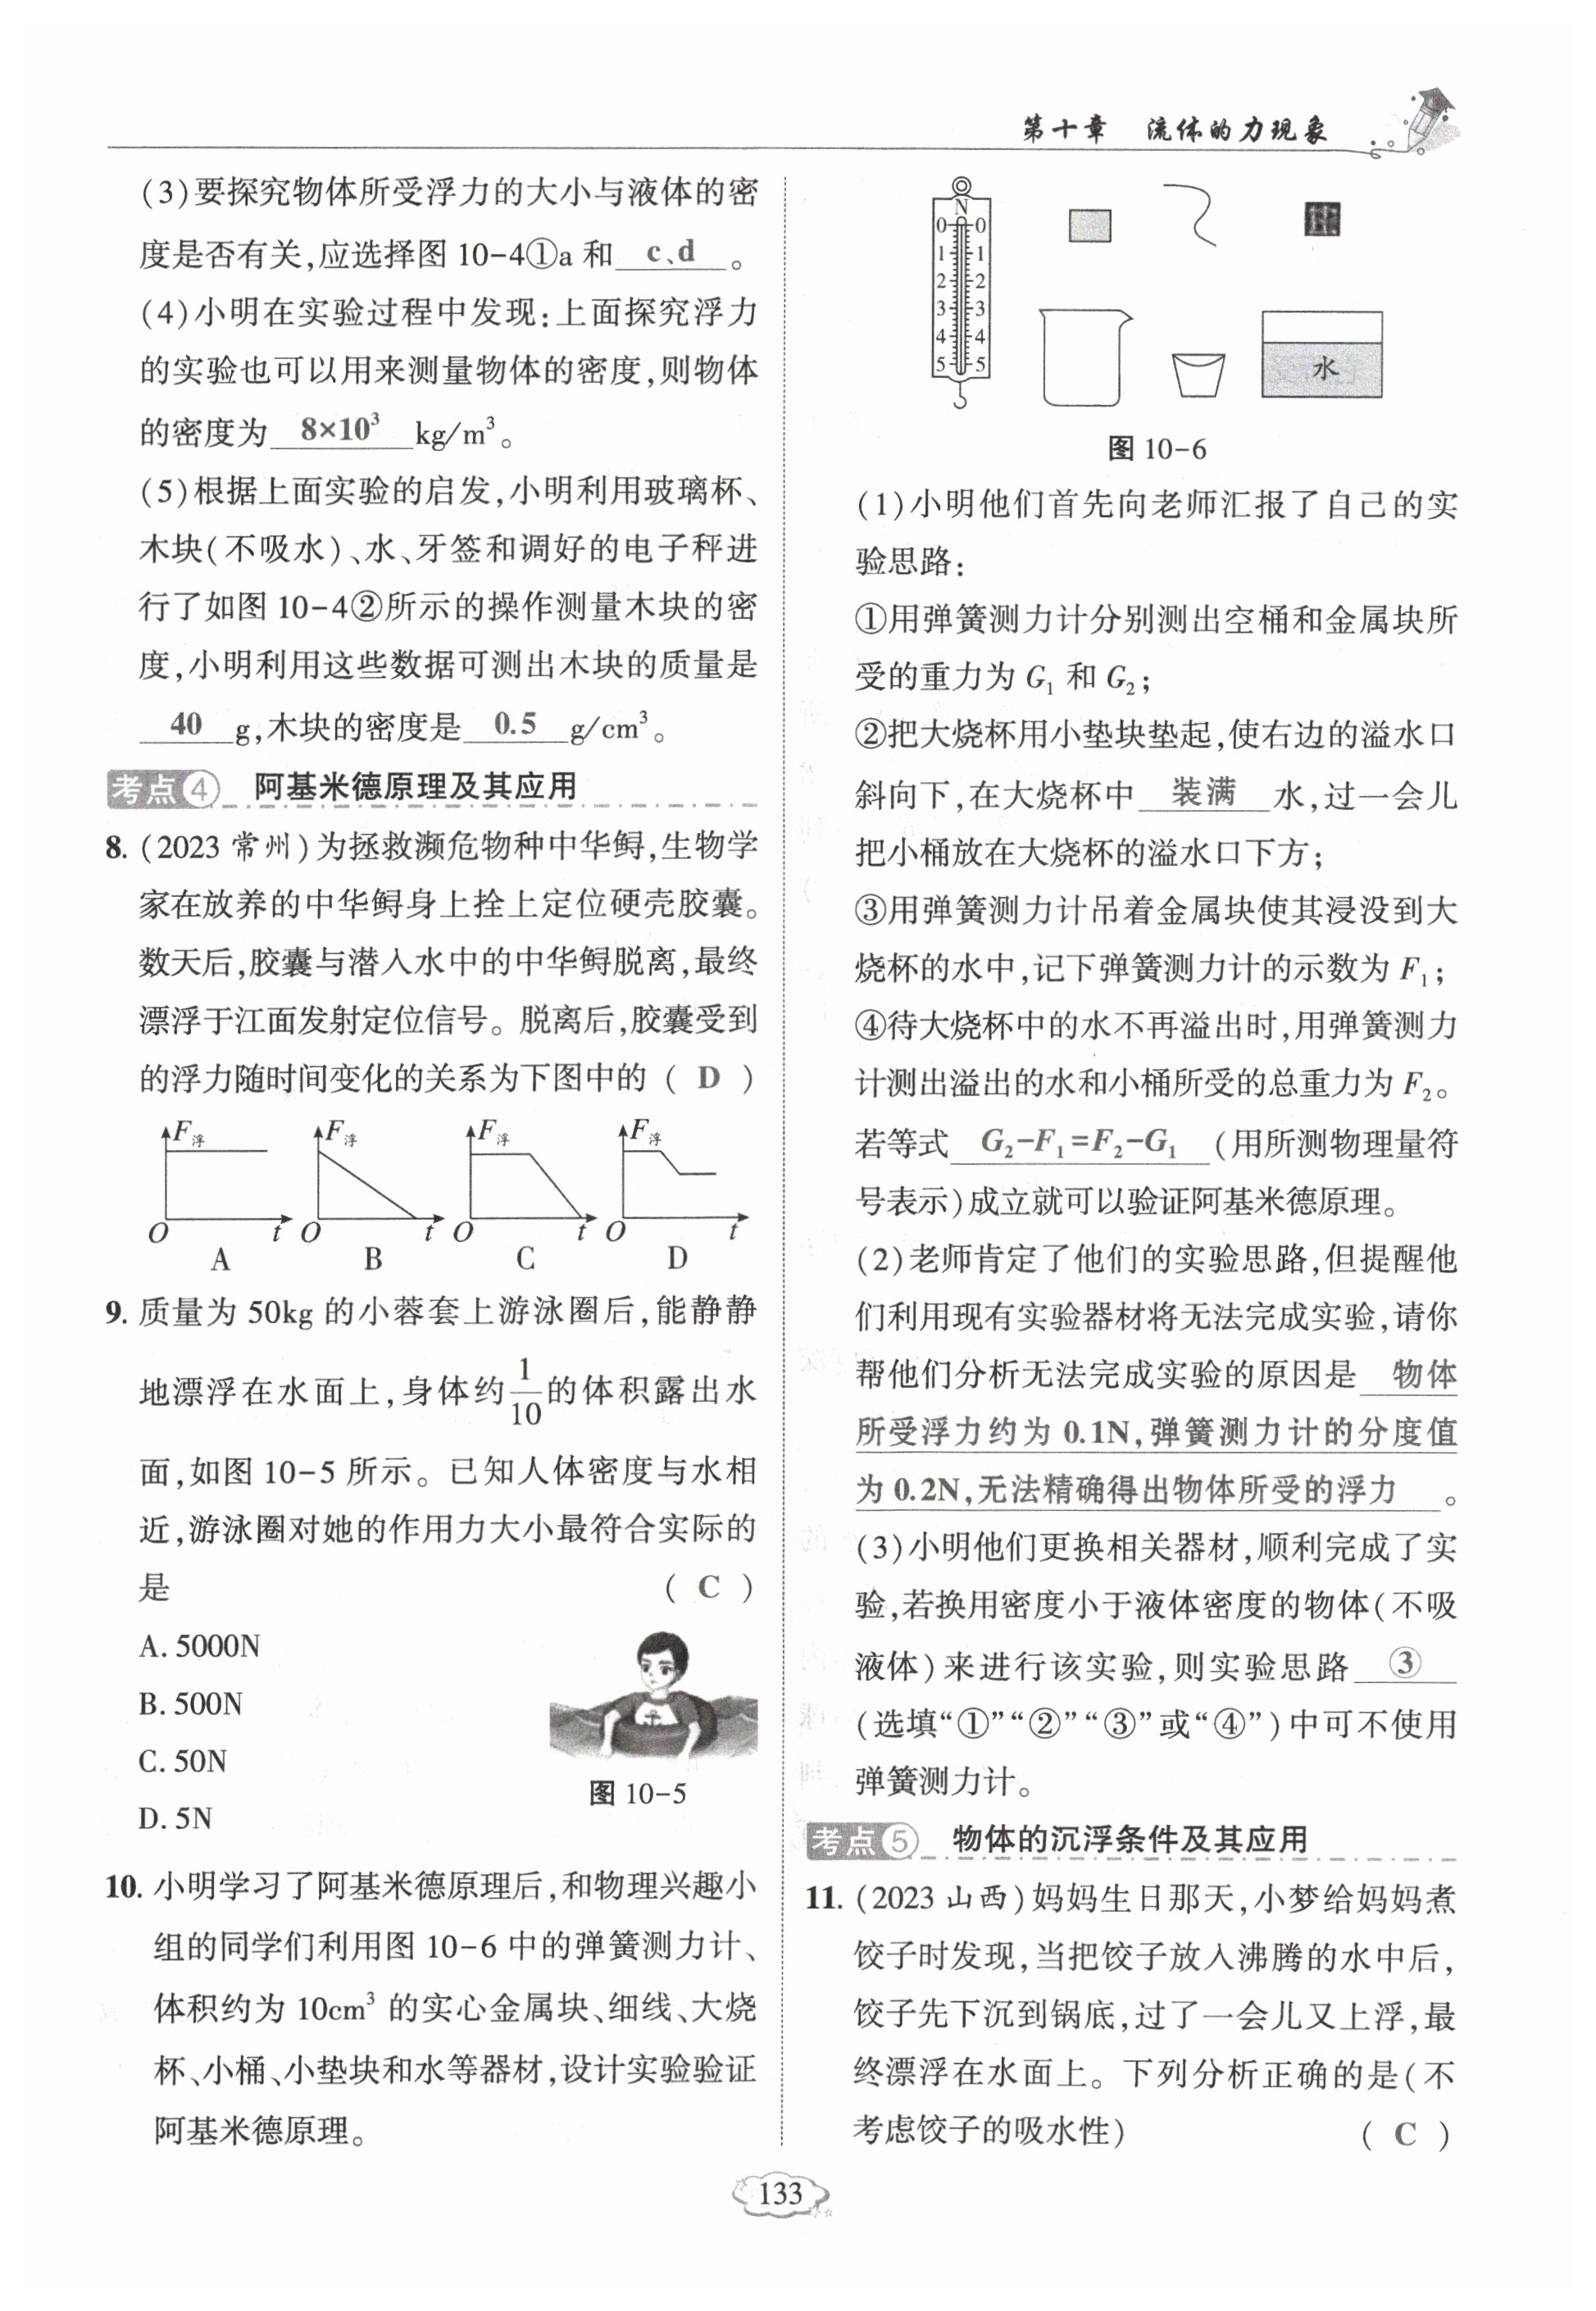 第十章 流体的力现象
(3)要探究物体所受浮力的大小与液体的密
度是否有关,应选择图 10-4①a 和 c、d 。
(4)小明在实验过程中发现:上面探究浮力
的实验也可以用来测量物体的密度,则物体
的密度为 8×10³ kg/m³。
(5)根据上面实验的启发,小明利用玻璃杯、
木块(不吸水)、水、牙签和调好的电子秤进
行了如图 10-4②所示的操作测量木块的密
度,小明利用这些数据可测出木块的质量是
40 g,木块的密度是 0.5 g/cm³。
考点4 阿基米德原理及其应用
8. (2023 常州)为拯救濒危物种中华鲟,生物学
家在放养的中华鲟身上拴上定位硬壳胶囊。
数天后,胶囊与潜入水中的中华鲟脱离,最终
漂浮于江面发射定位信号。脱离后,胶囊受到
的浮力随时间变化的关系为下图中的 ( D )
F浮 F浮 F浮 F浮
O t O t O t O t
A B C D
9. 质量为 50kg 的小蓉套上游泳圈后,能静静
地漂浮在水面上,身体约1/10的体积露出水
面,如图 10-5 所示。已知人体密度与水相
近,游泳圈对她的作用力大小最符合实际的
是 ( C )
A. 5000N
B. 500N
C. 50N
D. 5N
图 10-5
10. 小明学习了阿基米德原理后,和物理兴趣小
组的同学们利用图 10-6 中的弹簧测力计、
体积约为 10cm³ 的实心金属块、细线、大烧
杯、小桶、小垫块和水等器材,设计实验验证
阿基米德原理。
N
0 0
1 1
2 2
3 3
4 4
5 5
水
图 10-6
(1)小明他们首先向老师汇报了自己的实
验思路:
①用弹簧测力计分别测出空桶和金属块所
受的重力为 G₁ 和 G₂;
②把大烧杯用小垫块垫起,使右边的溢水口
斜向下,在大烧杯中 装满 水,过一会儿
把小桶放在大烧杯的溢水口下方;
③用弹簧测力计吊着金属块使其浸没到大
烧杯的水中,记下弹簧测力计的示数为 F₁;
④待大烧杯中的水不再溢出时,用弹簧测力
计测出溢出的水和小桶所受的总重力为 F₂。
若等式 G₂-F₁=F₂-G₁ (用所测物理量符
号表示)成立就可以验证阿基米德原理。
(2)老师肯定了他们的实验思路,但提醒他
们利用现有实验器材将无法完成实验,请你
帮他们分析无法完成实验的原因是 物体
所受浮力约为 0.1N,弹簧测力计的分度值
为 0.2N,无法精确得出物体所受的浮力 。
(3)小明他们更换相关器材,顺利完成了实
验,若换用密度小于液体密度的物体(不吸
液体)来进行该实验,则实验思路 ③
(选填“①”“②”“③”或“④”)中可不使用
弹簧测力计。
考点5 物体的沉浮条件及其应用
11. (2023 山西)妈妈生日那天,小梦给妈妈煮
饺子时发现,当把饺子放入沸腾的水中后,
饺子先下沉到锅底,过了一会儿又上浮,最
终漂浮在水面上。下列分析正确的是(不
考虑饺子的吸水性) ( C )
133